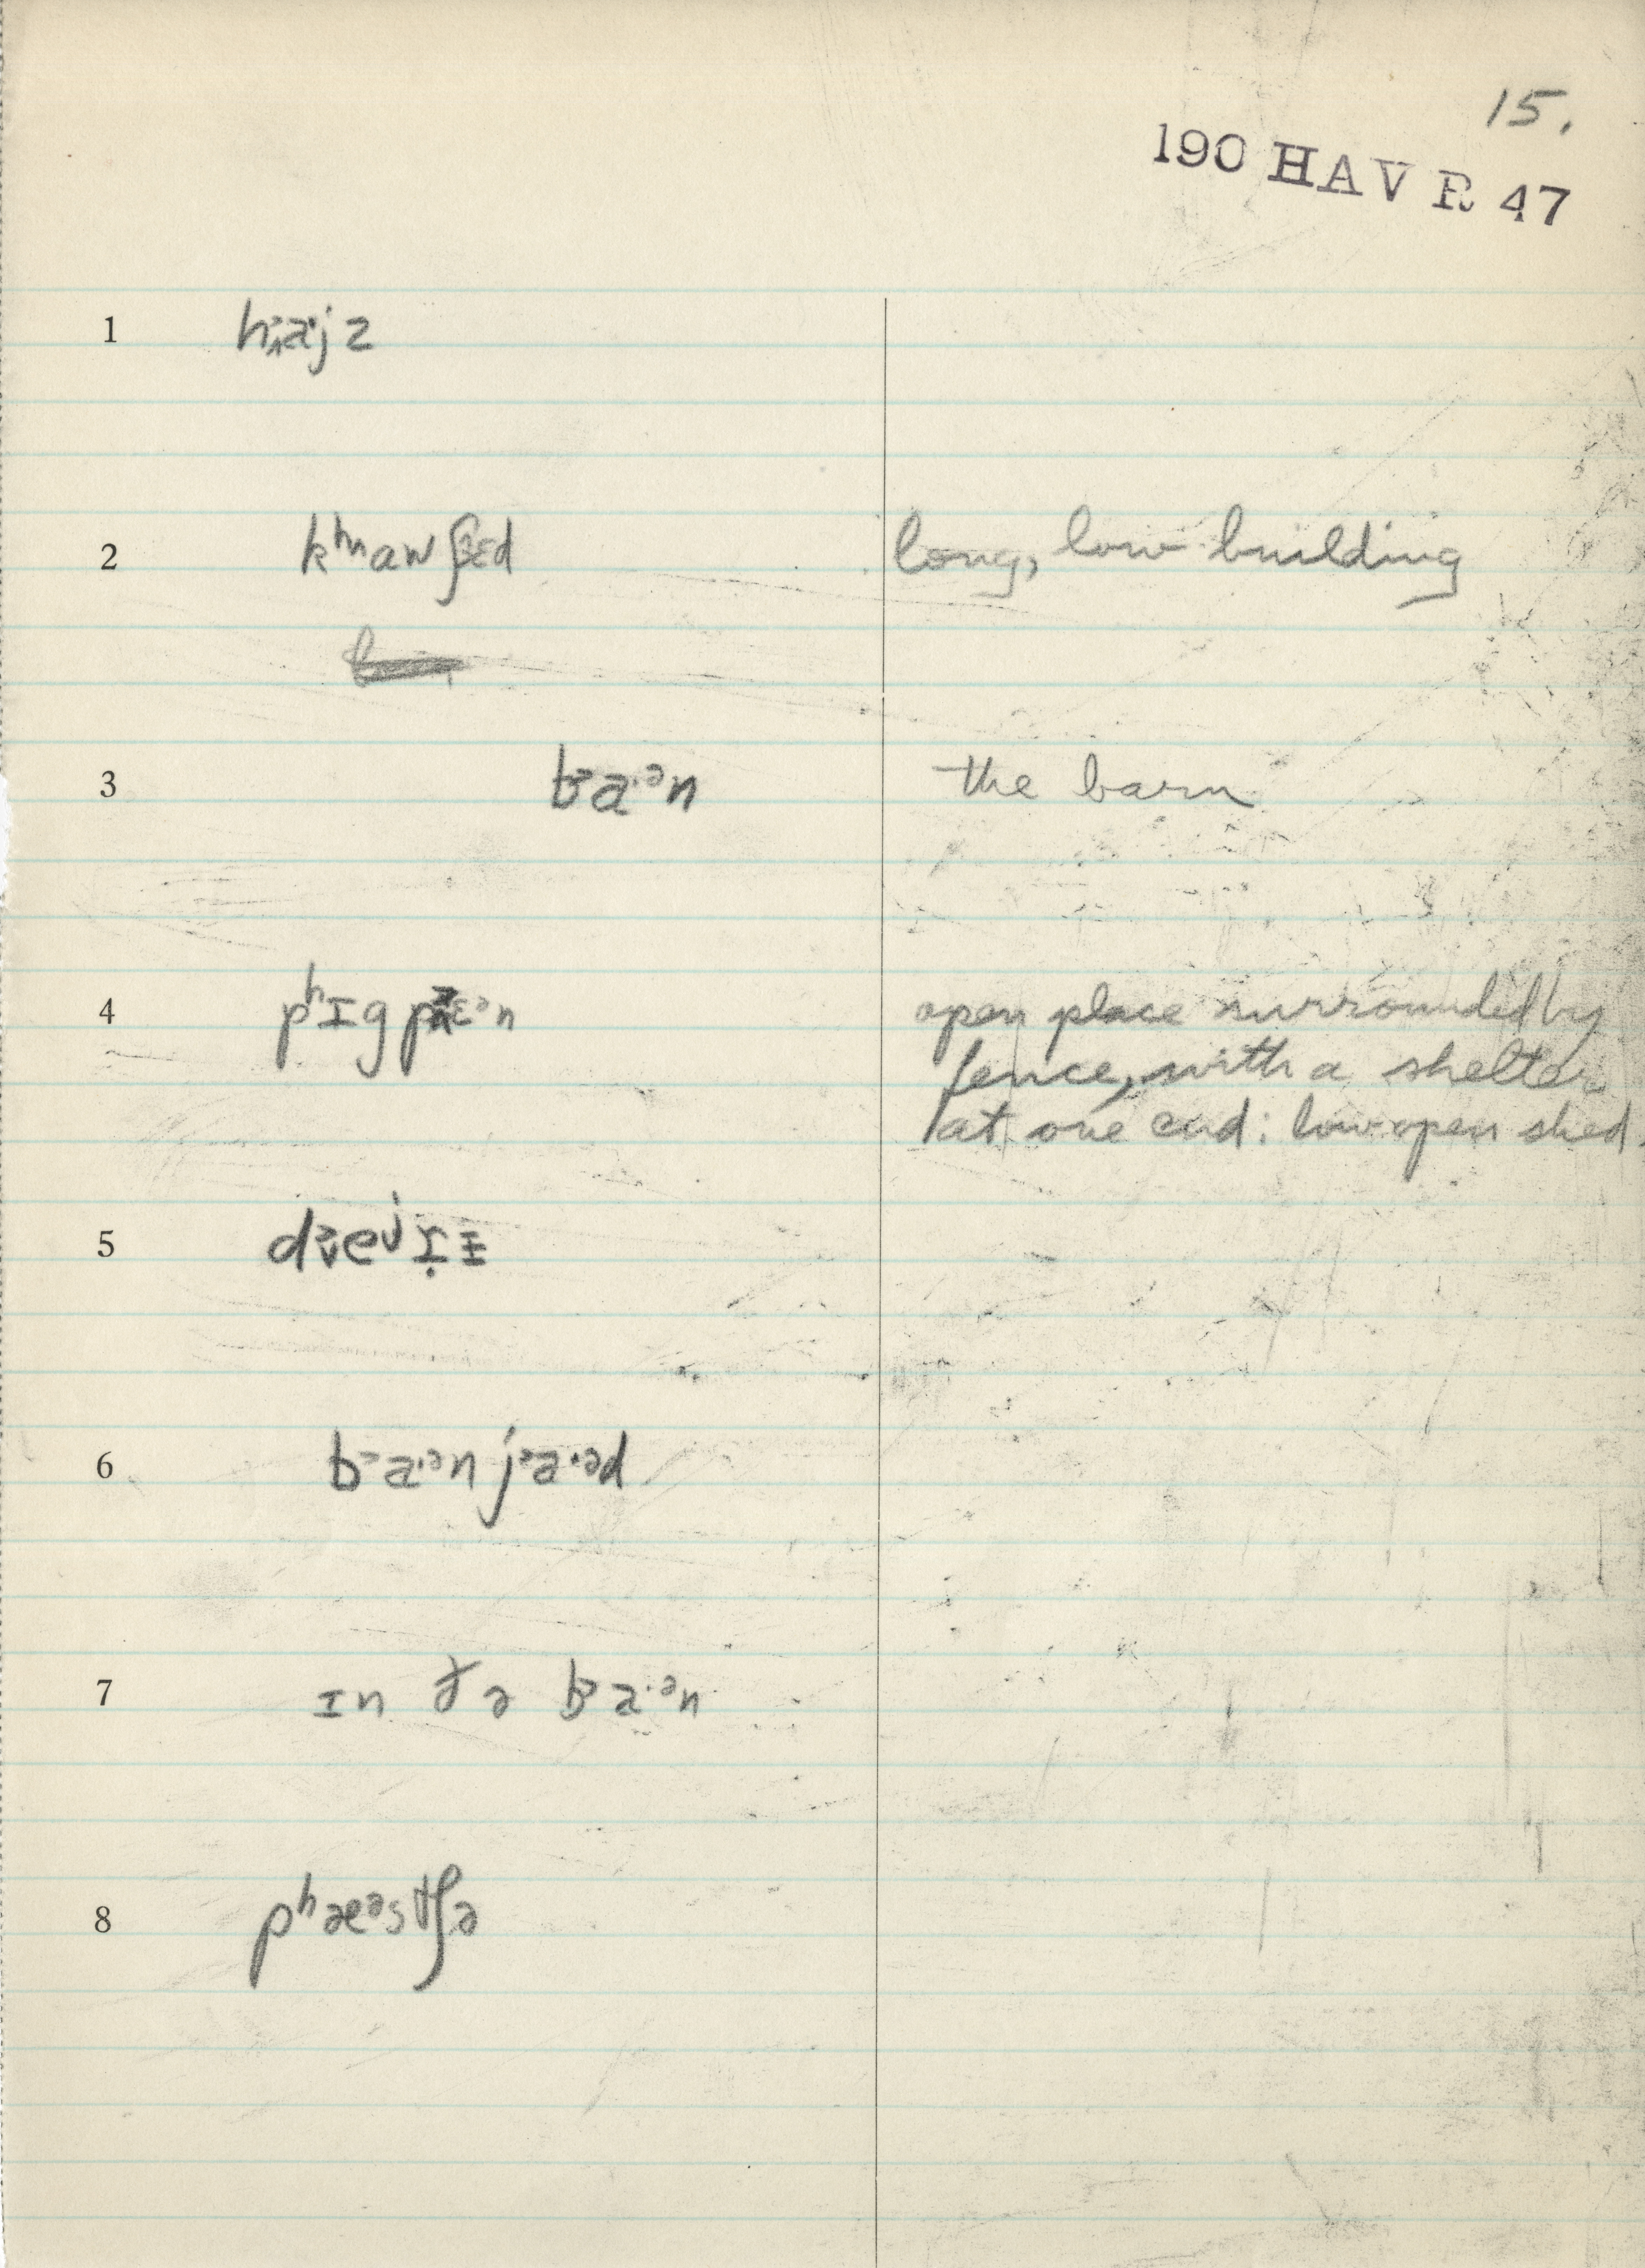 15.
190 HAV R 47
1 haˑjz
2 kʰaw ʃɛd long, low building
3 baˑᵊn the barn
4 pʰɪg pɛᵊn open place surrounded by
fence, with a shelter
at one end: low open shed.
5 deʲɾ̣ɨ
6 baˑᵊn jaˑəd
7 ɪn ðə baˑᵊn
8 pʰæᵊstʃə